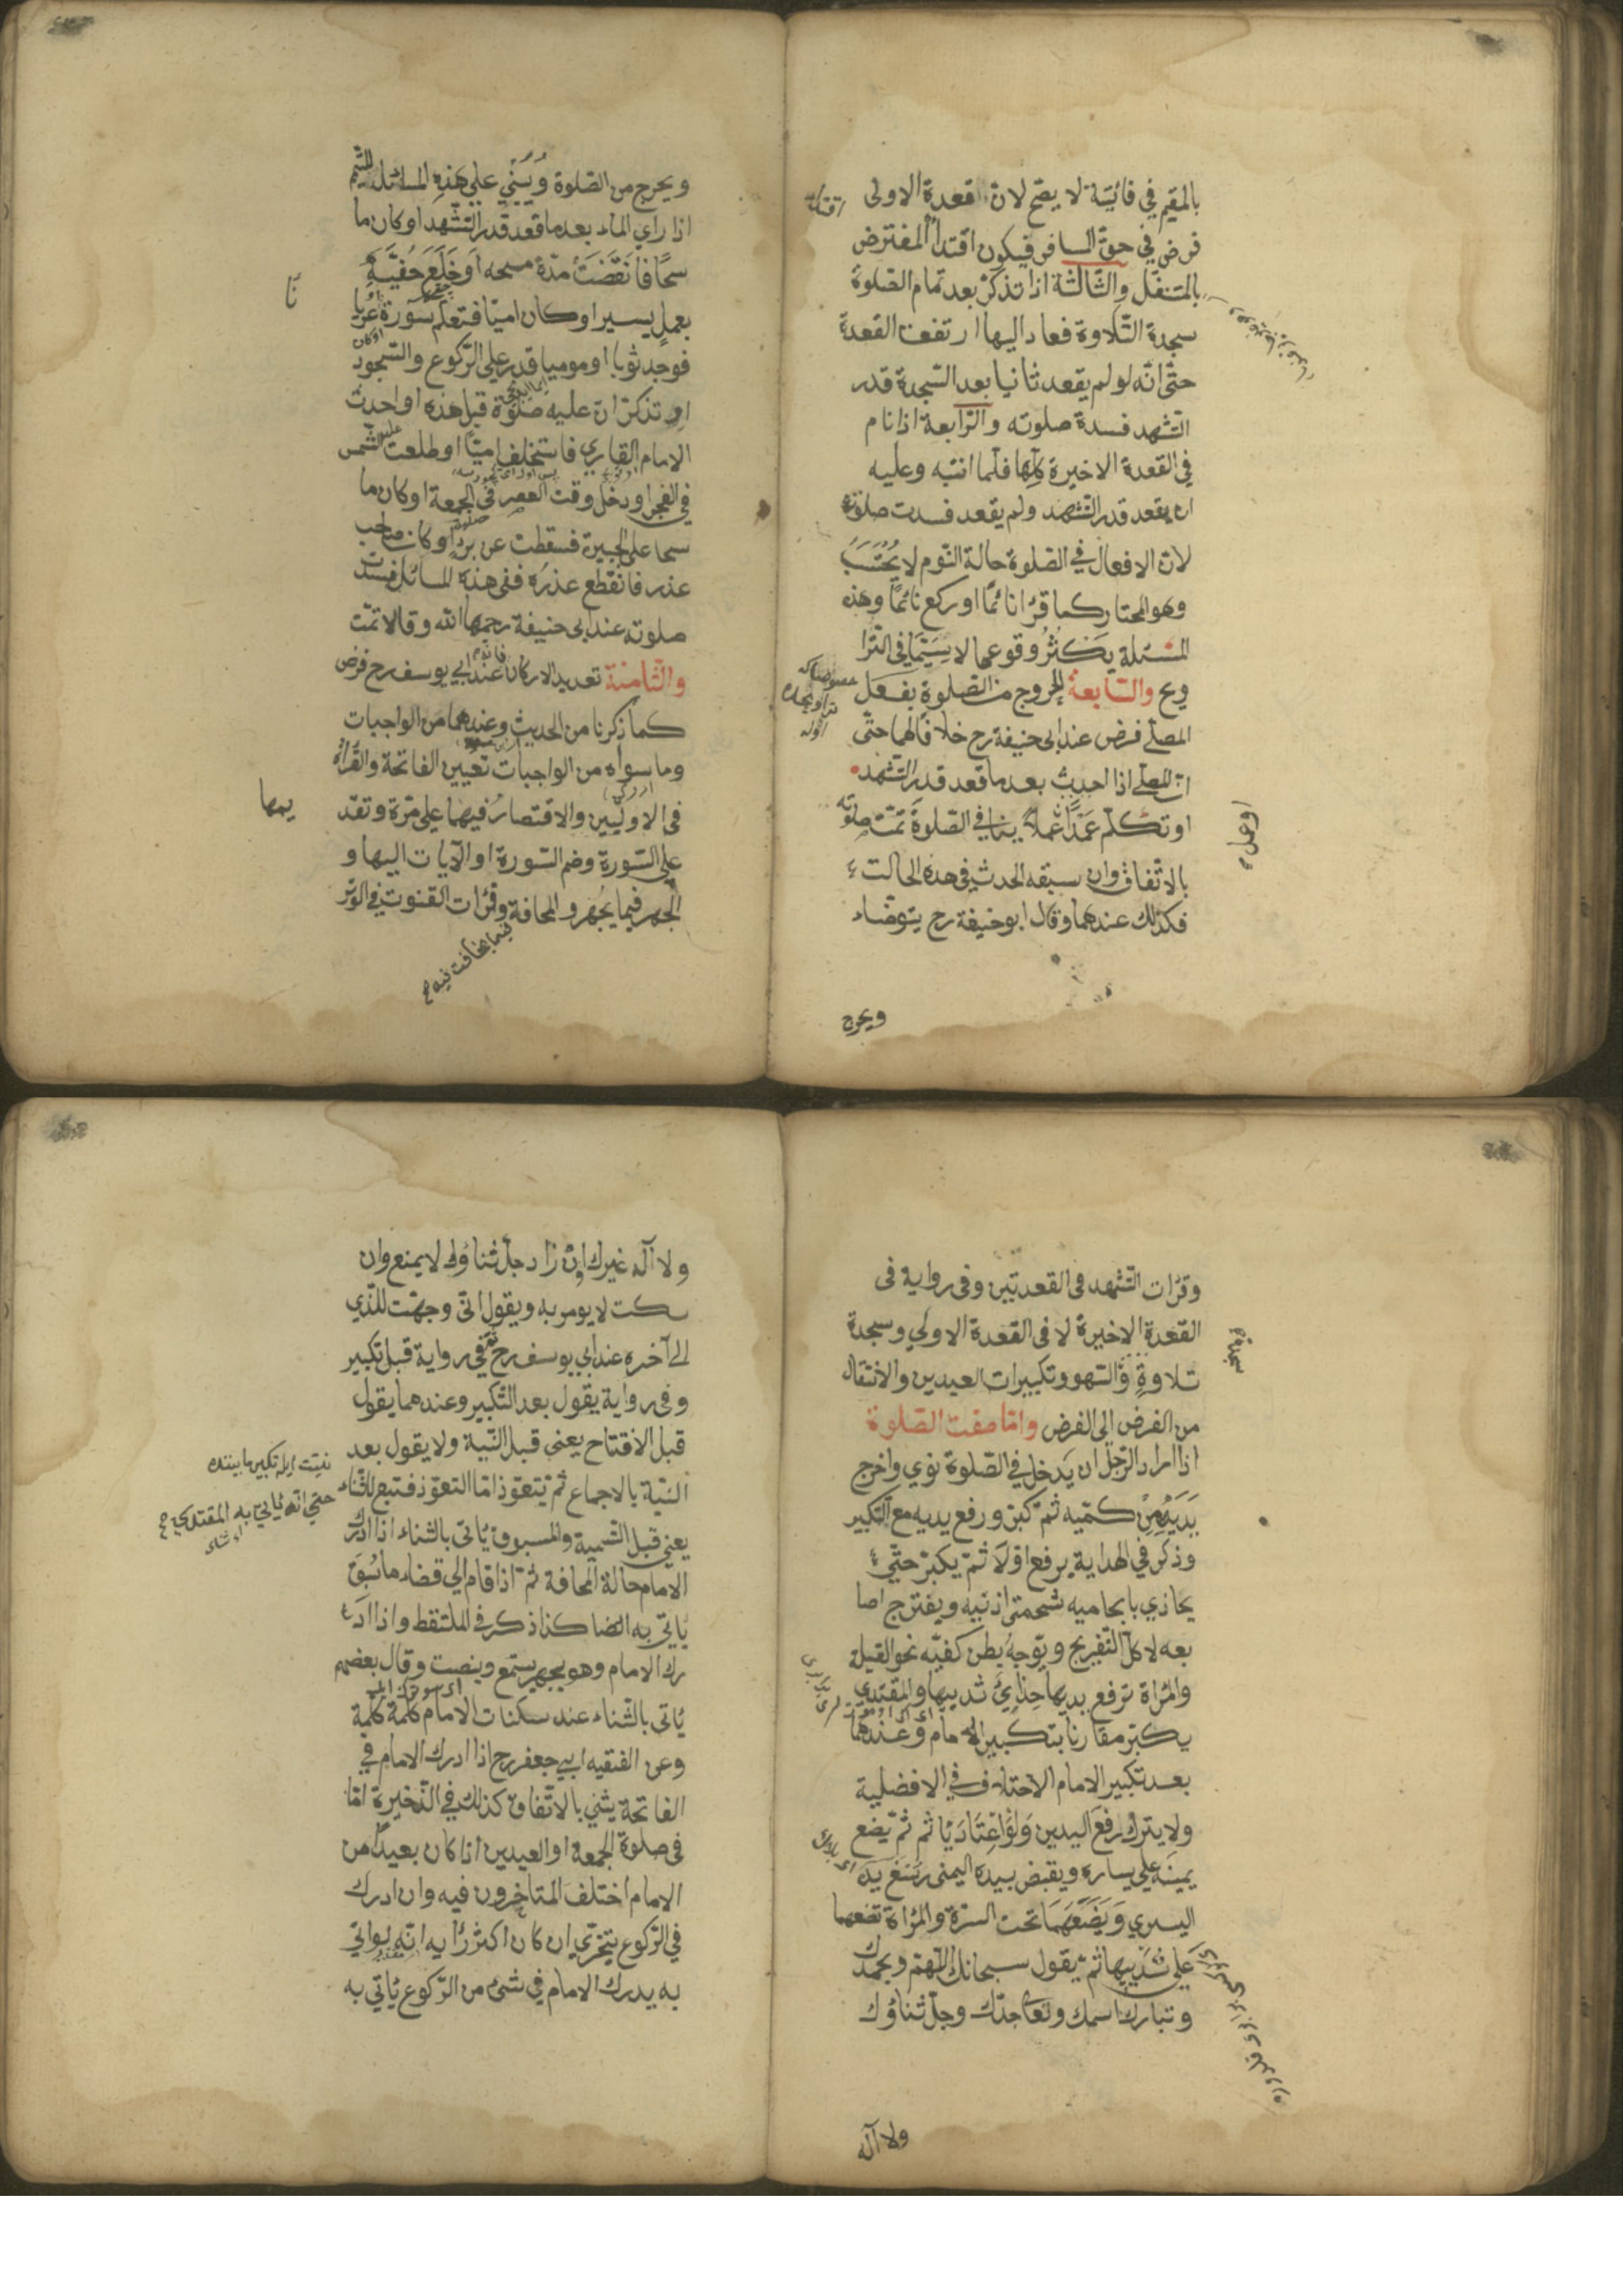 بالمقيم في فائتة لا يصح لان القعدة الاولى
فرض في حق المسافر فيكون اقتداء المفترض
بالمتنفل والثالثة اذا تذكر بعد تمام الصلوة
سجدة التلاوة فعاد اليها ارتفعت القعدة
حتى انه لو لم يقعد ثانيا بعد السجدة قدر
التشهد فسدة صلوته والرابعة اذا نام
في القعدة الاخيرة كلها فلما انتبه وعليه
ان يقعد قدر التشهد ولم يقعد فسدت صلوته
لان الافعال في الصلوة حالة النوم لا يحتسب
وهو المختار كما قرا نائما او ركع نائما وهذه
المسئلة يكثر وقوعها لا سيما في الترا
ويح والسابعة الخروج من الصلوة بفعل
المصلي فرض عند ابى حنيفة رح خلافا لهما حتى
ان المصلي اذا احدث بعد ما قعد قدر التشهد
او تكلم عمدا عملا ينافي الصلوة تمت صلوته
او عمل
بالاتفاق وان سبقه الحدث في هذه الحالت
فكذلك عندهما وقال ابو حنيفة رح يتوضاء
ويخرج
ويخرج من الصلوة ويبنى على هذه المسائل المتيمم
اذا راي الماء بعد ما قعد قدر التشهد او كان ما
سحا فانقضت مدة مسحه او خلع خفيه
بعمل يسير او كان اميا فتعلم سورة او عريا
نا
فوجد ثوبا او موميا قدر على الركوع والسجود
او تذكر ان عليه صلوة قبل هذه او احدث
الامام القاري فاستخلف اميا او طلعت الشمس
في الفجر او دخل وقت العصر في الجمعة او كان ما
سحا على الجبيرة فسقطت عن برء او كان صاحب
عذر فانقطع عذره ففي هذه المسائل فسدت
صلوته عند ابى حنيفة رحمها الله وقالا تمت
والثامنة تعديل الاركان عند ابي يوسف رح فرض
كما ذكرنا من الحديث وعندهما من الواجبات
وما سواه من الواجبات تعيين الفاتحة والقراة
في الاوليين والاقتصار فيهما على مرة وتقد
يمها
على السورة وضم السورة او الايات اليها و
الجهر فيما يجهر و المخافة وقرات القنوت في الوتر
فيما يخافت فيه
وقرات التشهد في القعدتين وفي رواية في
القعدة الاخيرة لا في القعدة الاولي وسجدة
تلاوة والسهو وتكبيرات العيدين والانتقال
من الفرض الى الفرض واما صفت الصلوة
اذا اراد الرجل ان يدخل في الصلوة نوي واخرج
يديه من كميه ثم كبر ورفع يديه مع التكبير
وذكر في الهداية يرفع اولا ثم يكبر حتى
يحاذي بابهاميه شحمتي اذنيه ويفترج اصا
بعه لا كل التفريج ويوجه بطن كفيه نحو القبلة
والمراة ترفع يديها حذائ ثدييها والمقتدي
يكبر مقارنا بتكبير الامام وعندهما
بعد تكبير الامام الاختلاف في الافضلية
ولا يترك رفع اليدين ولو اعتاد ياثم ثم يضع
يمينه على يساره ويقبض بيده اليمنى رسغ يده
اليسري ويضعهما تحت السرة والمراة تضعهما
على ثدييها ثم يقول سبحانك اللهم وبحمدك
وتبارك اسمك وتعا جدك وجل ثناؤك
ولا اله
ولا اله غيرك وان زاد جل ثناؤك لا يمنع وان
سكت لا يومر به ويقول انى وجهت للذي
الى آخره عند ابي يوسف رح ففي رواية قبل تكبير
وفي رواية يقول بعد التكبير وعندهما يقول
قبل الافتتاح يعني قبل النية ولا يقول بعد
النية بالاجماع ثم يتعوذ اما التعوذ فتبع للثناء
نيت ايله تكبير ما بيننده
حتى انه ياتي به المقتدي
يعني قبل التسمية والمسبوق ياتى بالثناء اذا ادرك
الامام حالة المخافة ثم اذا قام الي قضاء ما سبق
ياتى به ايضا كذا ذكر في الملتقط واذا اد
رك الامام وهو يجهر يستمع وينصت وقال بعضهم
ياتى بالثناء عند سكتات الامام كلمة كلمة
وعن الفقيه ابي جعفر رح اذا ادرك الامام في
الفاتحة يثني بالاتفاق كذلك في الذخيرة اما
في صلوة الجمعة او العيدين اذا كان بعيدا من
الامام اختلف المتاخرون فيه وان ادرك
في الركوع يتحري ان كان اكثر رايه انه لو اتي
به يدرك الامام في شئ من الركوع ياتي به